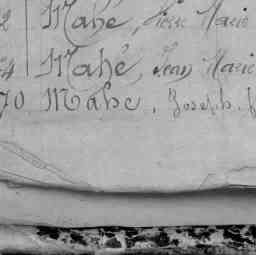 2 Mahé, Pierre Marie
4 Mahé, Jean Marie
70 Mahé, Joseph,